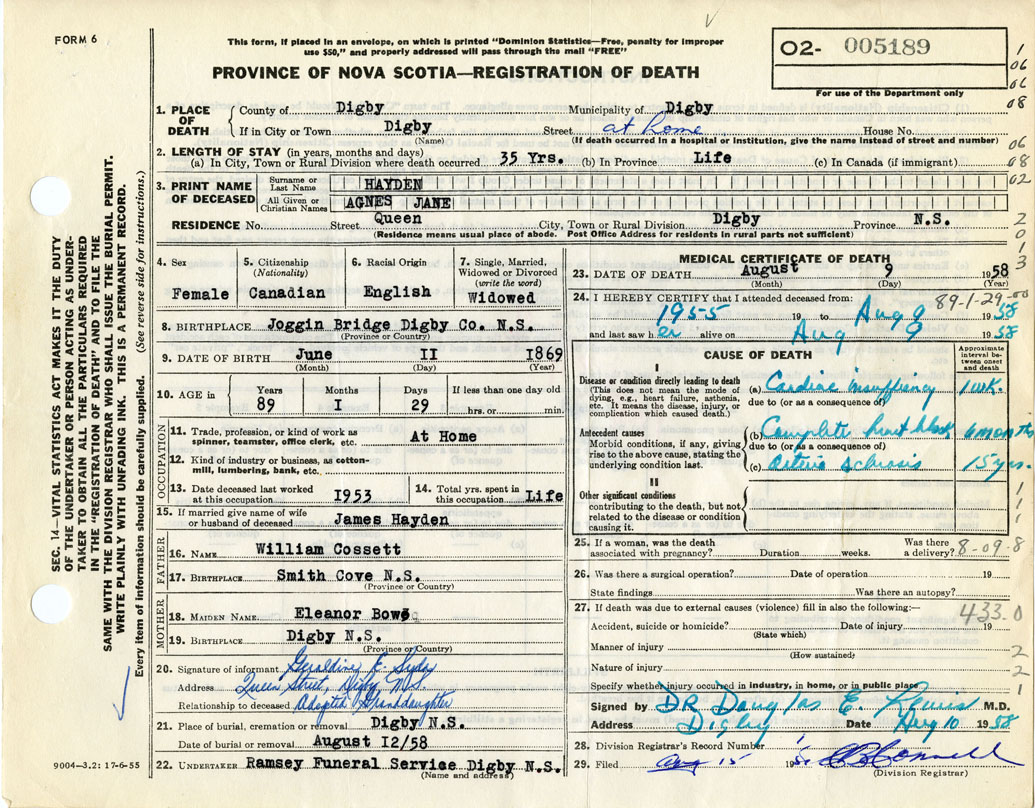 FORM 6
This form, if placed in an envelope, on which is printed "Dominion Statistics—Free, penalty for improper
use $50," and properly addressed will pass through the mail "FREE"
PROVINCE OF NOVA SCOTIA—REGISTRATION OF DEATH
02- 005189
For use of the Department only
1
06
06
08
06
08
02
2
0
1
3
SEC. 14—VITAL STATISTICS ACT MAKES IT THE DUTY
OF THE UNDERTAKER OR PERSON ACTING AS UNDER-
TAKER TO OBTAIN ALL THE PARTICULARS REQUIRED
IN THE "REGISTRATION OF DEATH" AND TO FILE THE
SAME WITH THE DIVISION REGISTRAR WHO SHALL ISSUE THE BURIAL PERMIT.
WRITE PLAINLY WITH UNFADING INK. THIS IS A PERMANENT RECORD.
Every item of information should be carefully supplied. (See reverse side for instructions.)
1. PLACE OF DEATH County of Digby Municipality of Digby
If in City or Town Digby Street at home House No.
(Name) (If death occurred in a hospital or institution, give the name instead of street and number)
2. LENGTH OF STAY (in years, months and days)
(a) In City, Town or Rural Division where death occurred 35 Yrs. (b) In Province Life (c) In Canada (if immigrant)
3. PRINT NAME OF DECEASED Surname or Last Name HAYDEN
All Given or Christian Names AGNES JANE
RESIDENCE No. Street Queen City, Town or Rural Division Digby Province N.S.
(Residence means usual place of abode. Post Office Address for residents in rural parts not sufficient)
4. Sex Female
5. Citizenship (Nationality) Canadian
6. Racial Origin English
7. Single, Married, Widowed or Divorced (write the word) Widowed
8. BIRTHPLACE Joggin Bridge Digby Co. N.S.
(Province or Country)
9. DATE OF BIRTH June II I869
(Month) (Day) (Year)
10. AGE in Years 89 Months I Days 29 If less than one day old hrs. or min.
OCCUPATION
11. Trade, profession, or kind of work as spinner, teamster, office clerk, etc. At Home
12. Kind of industry or business, as cotton-mill, lumbering, bank, etc.
13. Date deceased last worked at this occupation I953
14. Total yrs. spent in this occupation Life
15. If married give name of wife or husband of deceased James Hayden
FATHER
16. NAME William Cossett
17. BIRTHPLACE Smith Cove N.S.
(Province or Country)
MOTHER
18. MAIDEN NAME Eleanor Bowe
19. BIRTHPLACE Digby N.S.
(Province or Country)
20. Signature of informant Geraldine E.
Address Queen Street, Digby, N.S.
Relationship to deceased Adopted Granddaughter
21. Place of burial, cremation or removal Digby N.S.
Date of burial or removal August I2/58
22. UNDERTAKER Ramsey Funeral Service Digby N.S.
(Name and address)
9004—3.2: 17-6-55
MEDICAL CERTIFICATE OF DEATH
23. DATE OF DEATH August 9 1958
(Month) (Day) (Year)
89-1-29-00
24. I HEREBY CERTIFY that I attended deceased from:
1955 19 to Aug 9 1958
and last saw her alive on Aug 9 1958
CAUSE OF DEATH
Approximate interval between onset and death
I
Disease or condition directly leading to death
(This does not mean the mode of dying, e.g., heart failure, asthenia, etc. It means the disease, injury, or complication which caused death.)
(a) Cardiac insufficiency 1 wk.
due to (or as a consequence of)
Antecedent causes
Morbid conditions, if any, giving rise to the above cause, stating the underlying condition last.
(b) Complete heart block 6 months
due to (or as a consequence of)
(c) arterio sclerosis 15 yrs.
II
Other significant conditions
contributing to the death, but not related to the disease or condition causing it.
1
1
1
25. If a woman, was the death associated with pregnancy? Duration weeks. Was there a delivery? 8-09-8
26. Was there a surgical operation? Date of operation 19
State findings Was there an autopsy?
27. If death was due to external causes (violence) fill in also the following:—
433.0
Accident, suicide or homicide? Date of injury 19
(State which)
Manner of injury
(How sustained)
2
Nature of injury
2
Specify whether injury occurred in industry, in home, or in public place
1
Signed by DR Douglas E. Lewis M.D.
Address Digby Date Aug 10 1958
28. Division Registrar's Record Number
29. Filed Aug 15 195
(Division Registrar)